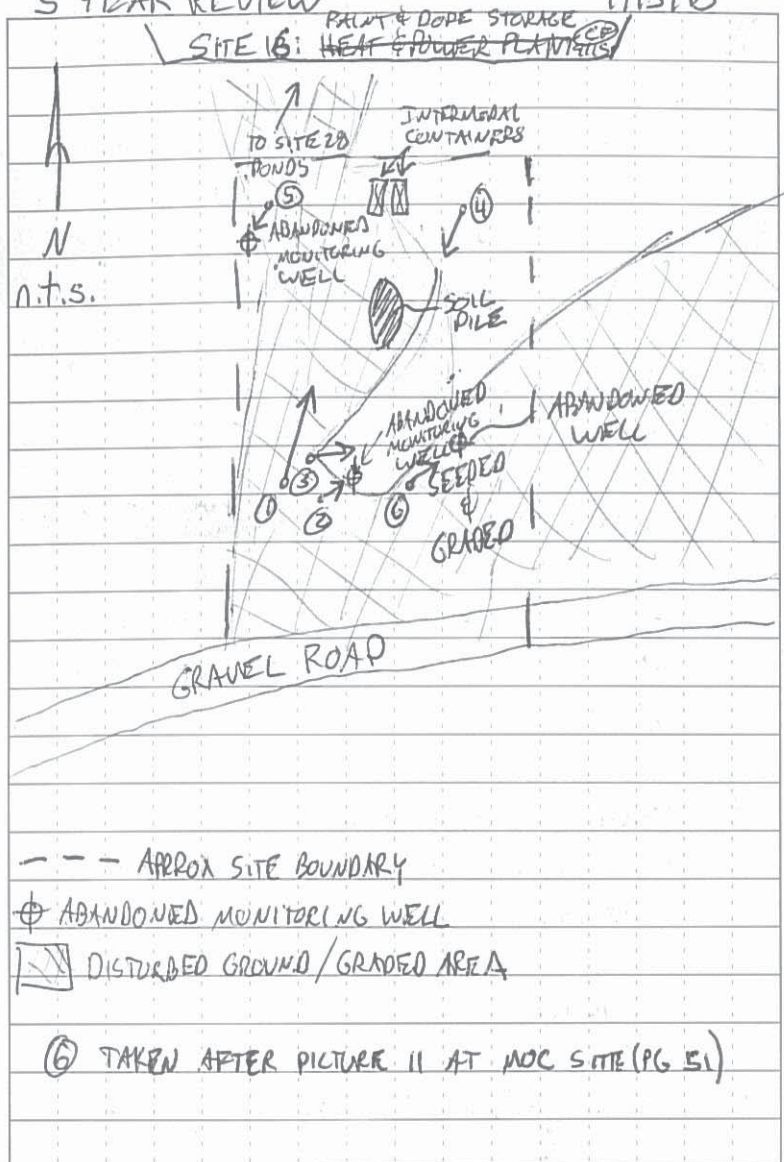 5 YEAR REVIEW
PAINT & DOPE STORAGE
SITE 16: HEAT & POWER PLANT
TO SITE 28
PONDS
INTERMODAL
CONTAINERS
N
n.t.s.
⑤
④
ABANDONED
MONITORING
WELL
SOIL
PILE
ABANDONED
MONITORING
WELL
ABANDONED
WELL
① ③ ② ⑥
SEEDED
&
GRADED
GRAVEL ROAD
--- APPROX SITE BOUNDARY
ABANDONED MONITORING WELL
DISTURBED GROUND/GRADED AREA
⑥ TAKEN AFTER PICTURE 11 AT MOC SITE (PG 51)